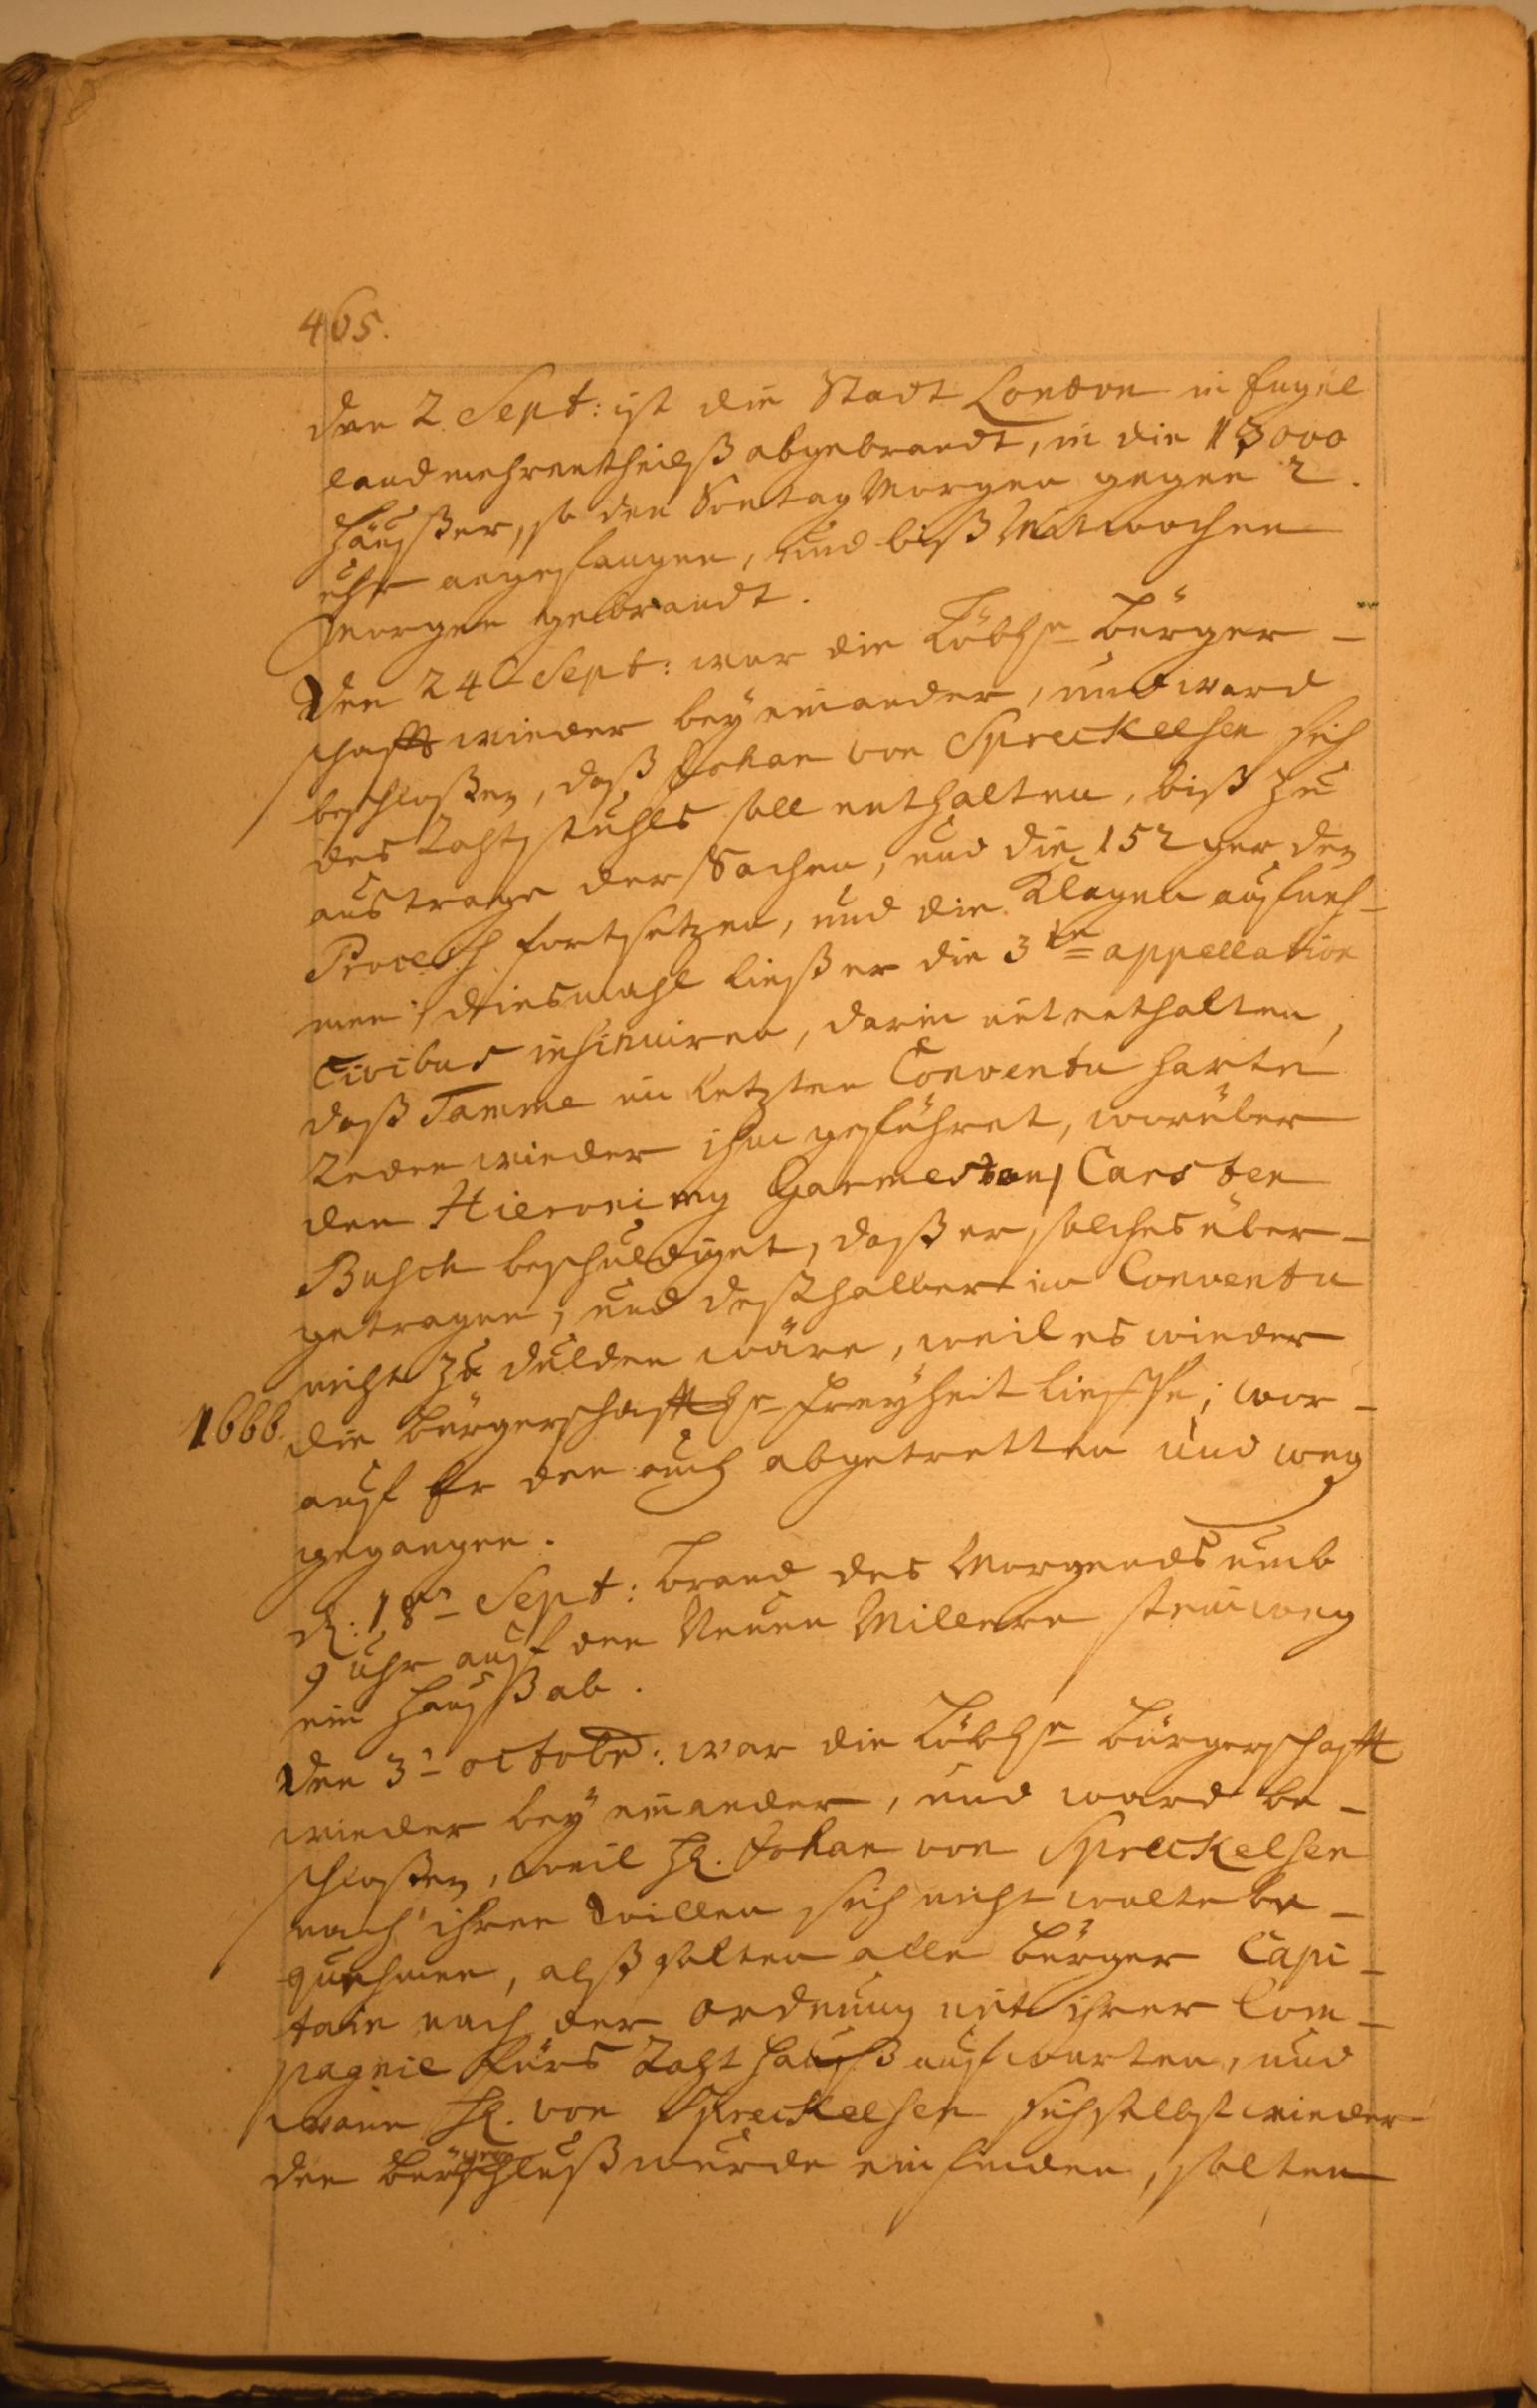 465.
den 2. Sept: ist die Stadt London in Engel
land mehrentheilß abgebrandt, in die 13000
Häußer, so den Sontag Morgen gegen 2.
uhr angefangen, und biß Mitwochen
Morgen gebrandt.
Den 24 Sept: war die Löbl. Bürger-
schafft wieder beÿ einander, und ward
beschloßen, daß Johan von Spreckelsen sich
des Rahtstuhls soll enthalten, biß zu
austrage der Sachen, und die 152ger den
Process fortsetzen, und die Klagen außneh-
men, diesmahl ließ er die 3te appellation
Civibus insinuiren, darin mit enthalten,
daß Tamme im letzten Conventu harte
Reden wieder ihm geführet, worüber
den Hieronimy Garmestan, Carsten
Busch beschuldiget, daß er solches über-
getragen, und deßhalber im Conventu
nicht zu dulden wäre, weil es wieder
1666. die Bürgerschafftl. Freÿheit lieffe; wor-
auf Er den auch abgetretten und weg
gegangen.
d: 18 Sept: brand des Morgends umb
9 uhr auf den Neuen Millern steinweg
ein Hauß ab.
Den 3 octobr: war die Löbl. Bürgerschafft
wieder beÿ einander, und ward be-
schloßen, weil H. Johan von Spreckelsen
nach ihren Willen sich nicht wolte be-
quehmen, alß solten alle Bürger Capi-
tain nach der ordnung mit ihrer Com-
pagnie fürs Rahthauß aufwarten, und
wann H. von Spreckelsen sich selbst wieder
den Bürgerschluß wurde einfinden, solten